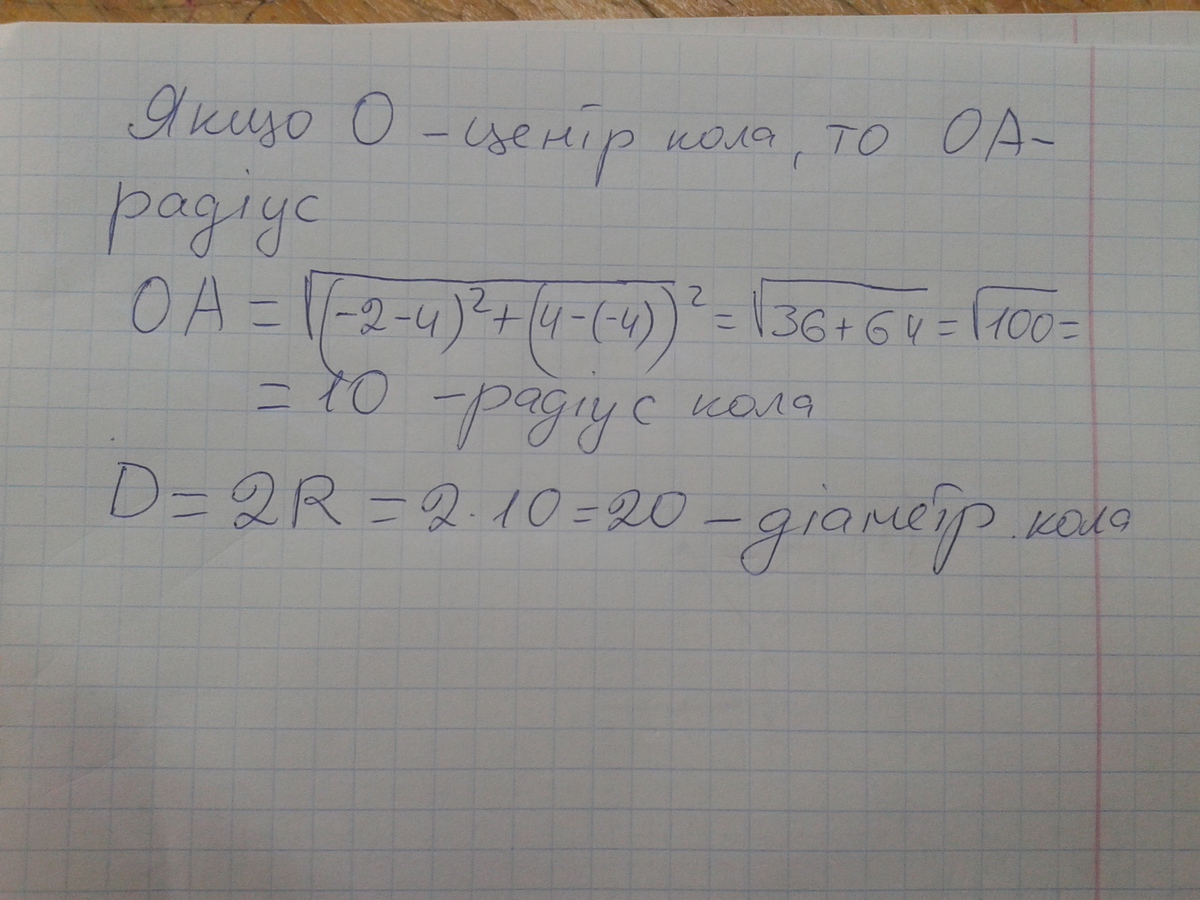 Якщо O – центр кола, то OA –
радіус
OA = √((-2-4)² + (4-(-4))²) = √(36+64) = √100 =
= 10 – радіус кола
D = 2R = 2·10 = 20 – діаметр кола